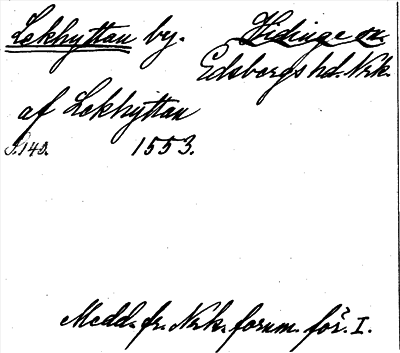 Lekhyttan by. Hidinge sn.
Edsbergs hd. Nrk.
af Lekhyttan
S. 140. 1553.
Medd. fr. Nrk. fornm. för. I.